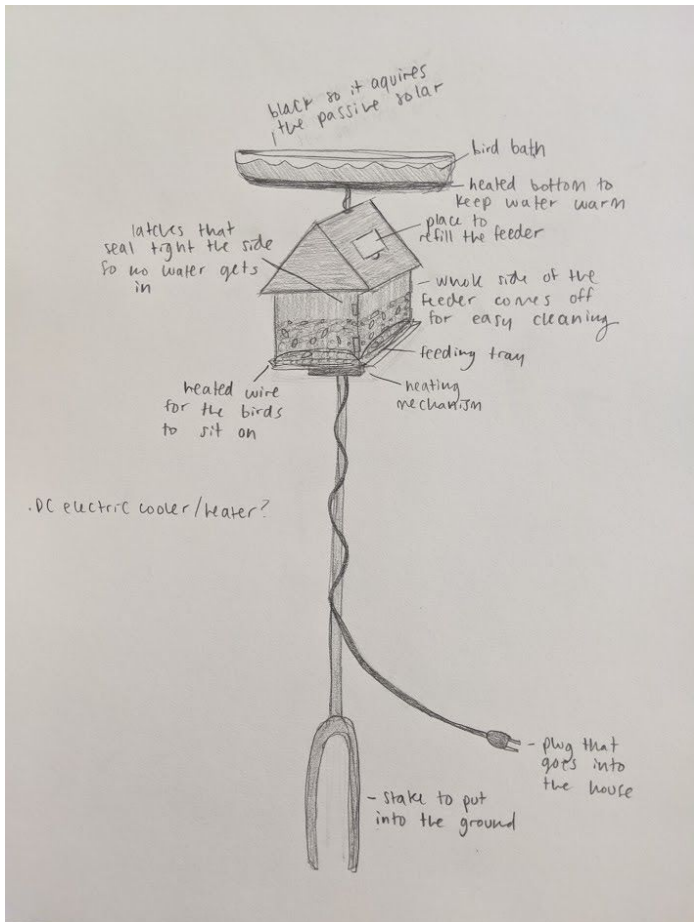 black so it aquires
the passive solar
bird bath
heated bottom to
keep water warm
place to
refill the feeder
latches that
seal tight the side
so no water gets
in
whole side of the
feeder comes off
for easy cleaning
feeding tray
heating
mechanism
heated wire
for the birds
to sit on
.DC electric cooler/heater?
- plug that
goes into
the house
- stake to put
into the ground